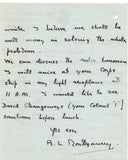 write I believe we shall be
well away in solving the whole
problem.
We can discuss the
I will arrive at your Corps
ship in my light
11 A.M. I would like to see
David Strangeways (your Colonel I)
sometime before lunch.
Yrs ever
B. L. Montgomery